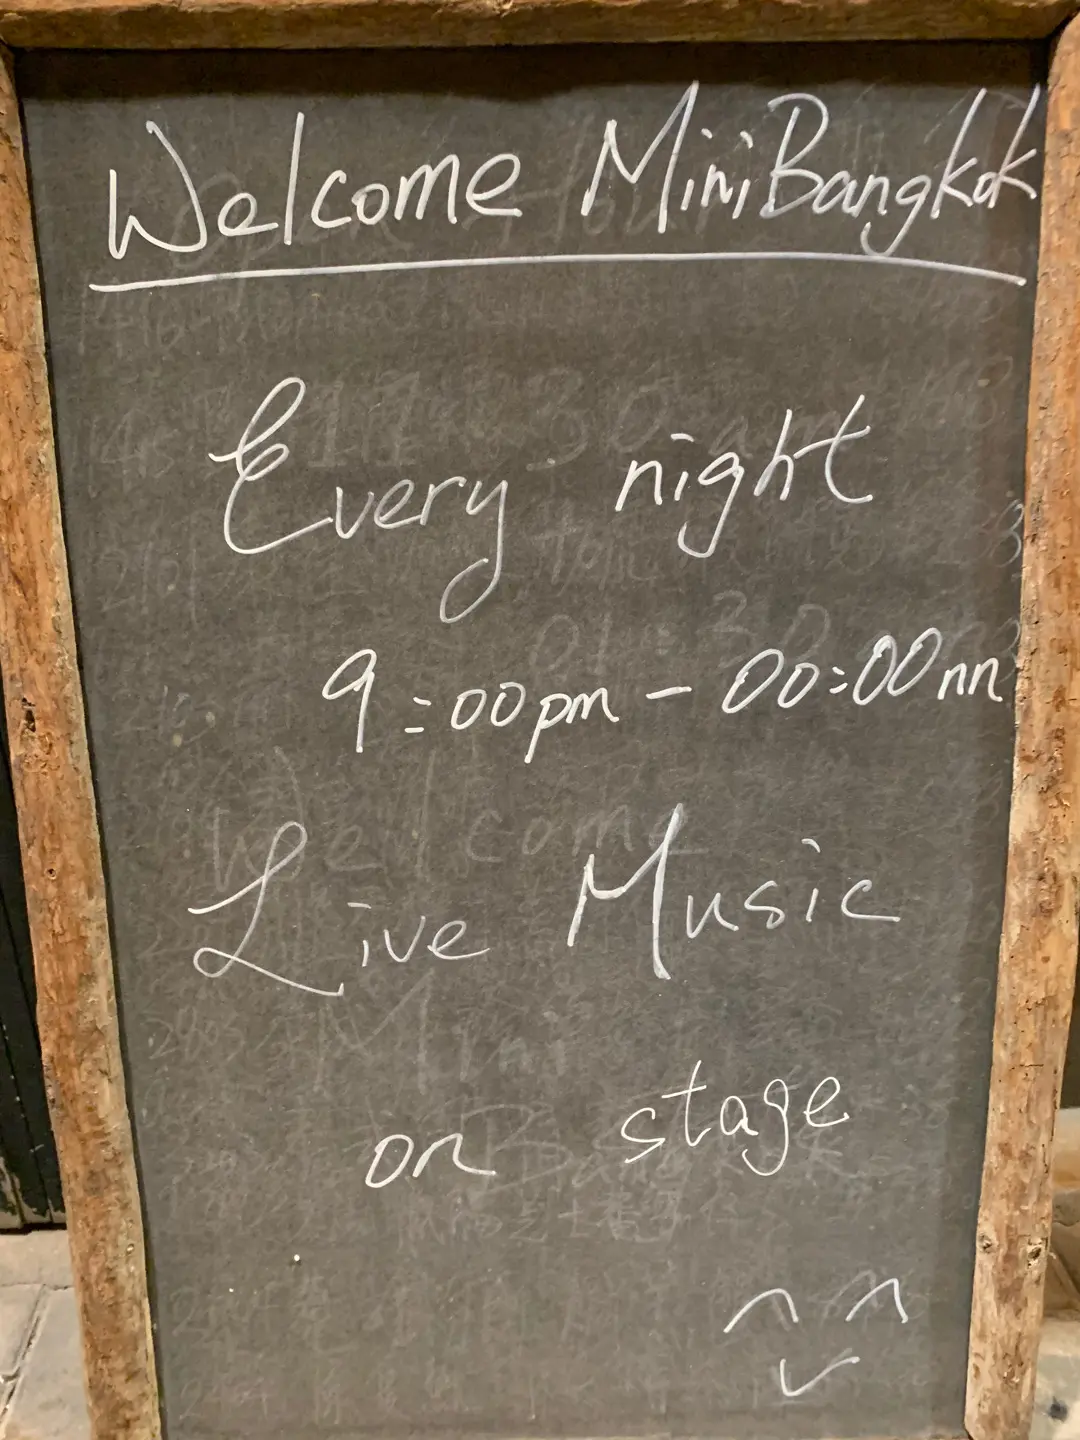 Welcome MiniBangkok
Every night
9:00pm - 00:00nn
Live Music
on stage